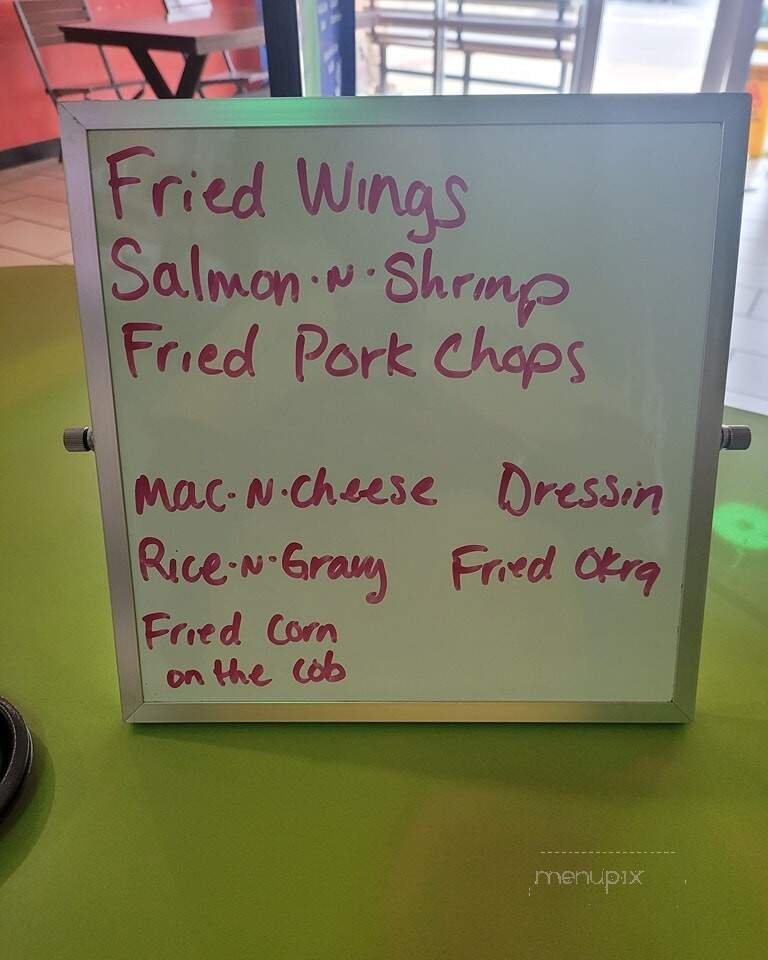 Fried Wings
Salmon·N·Shrimp
Fried Pork Chops
Mac·N·Cheese Dressin
Rice·N·Gravy Fried Okra
Fried Corn
on the Cob
menupix